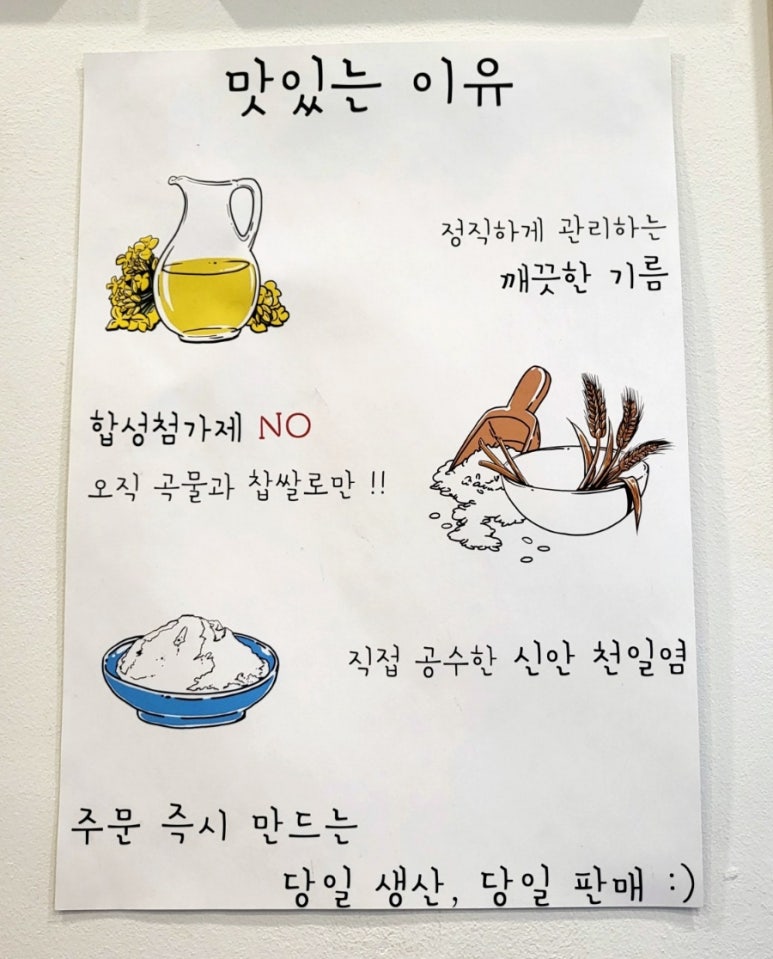 맛있는 이유
정직하게 관리하는
깨끗한 기름
합성첨가제 NO
오직 곡물과 찹쌀로만 !!
직접 공수한 신안 천일염
주문 즉시 만드는
당일 생산, 당일 판매 :)